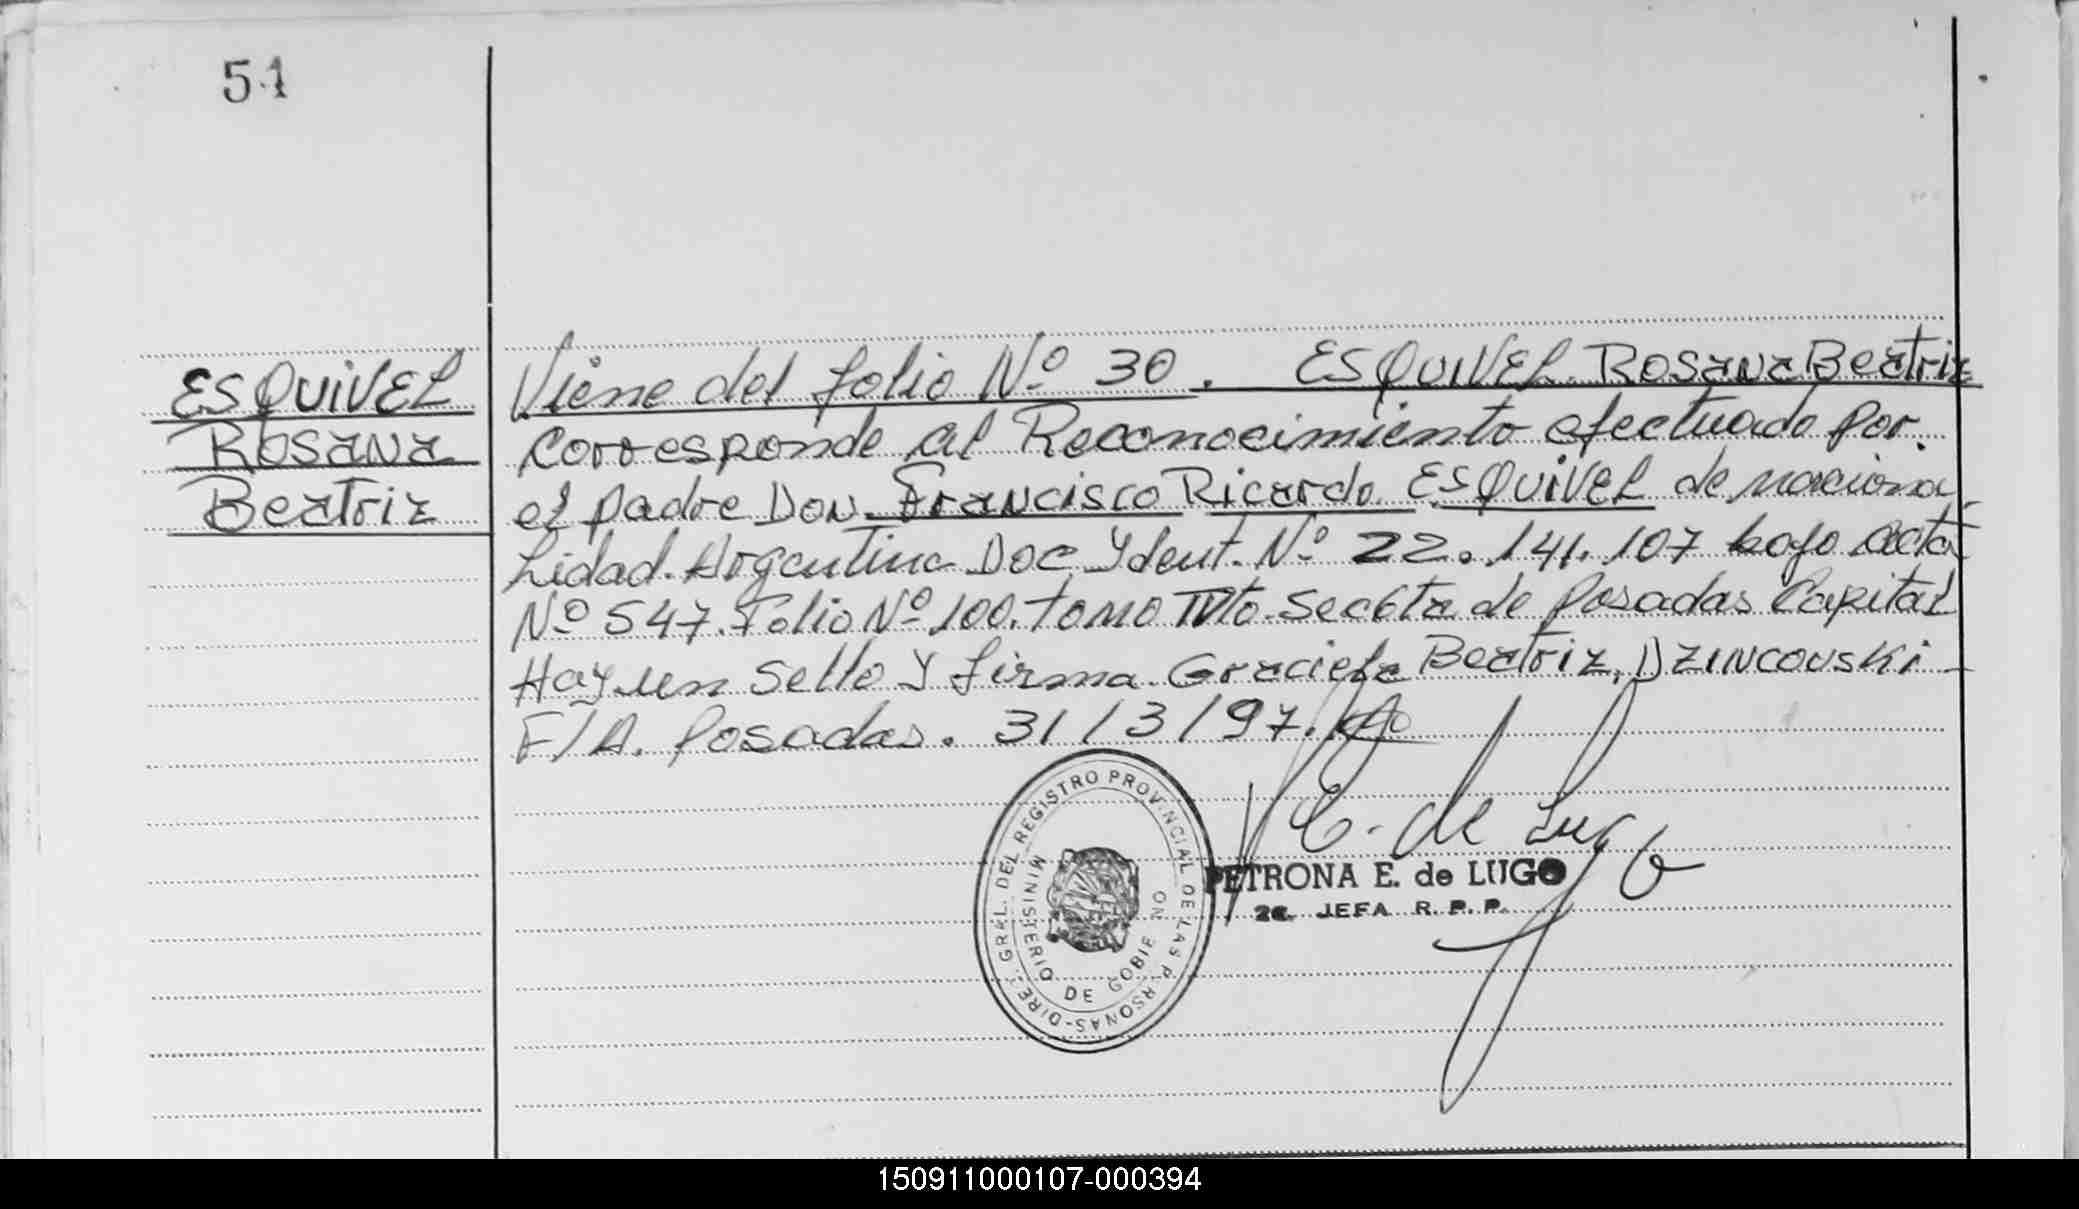 51
ESQUIVEL
Rosana
Beatriz
Viene del folio Nº 30. ESQUIVEL Rosana Beatriz
Corresponde al Reconocimiento efectuado por.
el padre Don. Francisco Ricardo ESQUIVEL de naciona
lidad. Argentina Doc Ydent. Nº 22.141.107 bajo acta
Nº 547. Folio Nº 100. Tomo de Posadas Capital
Hay un Sello Y firma. Graciela Beatriz. DZINCOVSKi
F/A. Posadas. 31/3/97.
E. de Lugo
PETRONA E. de LUGO
JEFA R. P. P.
DIREC. GRAL. DEL REGISTRO PROVINCIAL DE LAS PERSONAS-
MINISTERIO DE GOBIE NO
150911000107-000394